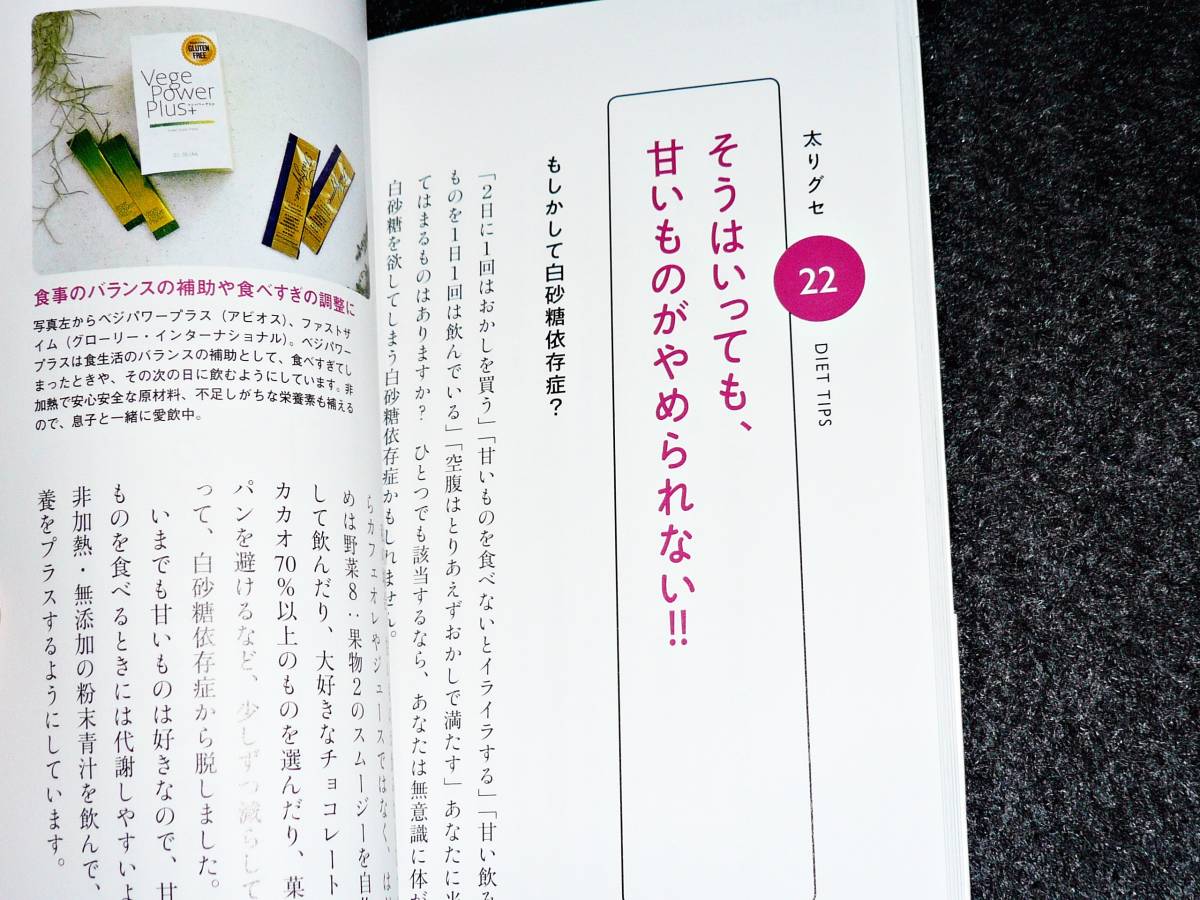 太りグセ
22
DIET TIPS
そうはいっても、
甘いものがやめられない!!
もしかして白砂糖依存症？
「2日に1回はおかしを買う」「甘いものを食べないとイライラする」「甘い飲み
ものを1日1回は飲んでいる」「空腹はとりあえずおかしで満たす」あなたに当
てはまるものはありますか？　ひとつでも該当するなら、あなたは無意識に体が
白砂糖を欲してしまう白砂糖依存症かもしれません。
GLUTEN
FREE
Vege
Power
Plus+
食事のバランスの補助や食べすぎの調整に
写真左からベジパワープラス（アビオス）、ファストザ
イム（グローリー・インターナショナル）。ベジパワー
プラスは食生活のバランスの補助として、食べすぎてし
まったときや、その次の日に飲むようにしています。非
加熱で安心安全な原材料、不足しがちな栄養素も補える
ので、息子と一緒に愛飲中。
らカフェオレやジュースではなく、は
めは野菜8：果物2のスムージーを自
して飲んだり、大好きなチョコレート
カカオ70%以上のものを選んだり、菓
パンを避けるなど、少しずつ減らして
って、白砂糖依存症から脱しました。
いまでも甘いものは好きなので、甘
ものを食べるときには代謝しやすいよ
非加熱・無添加の粉末青汁を飲んで、
養をプラスするようにしています。